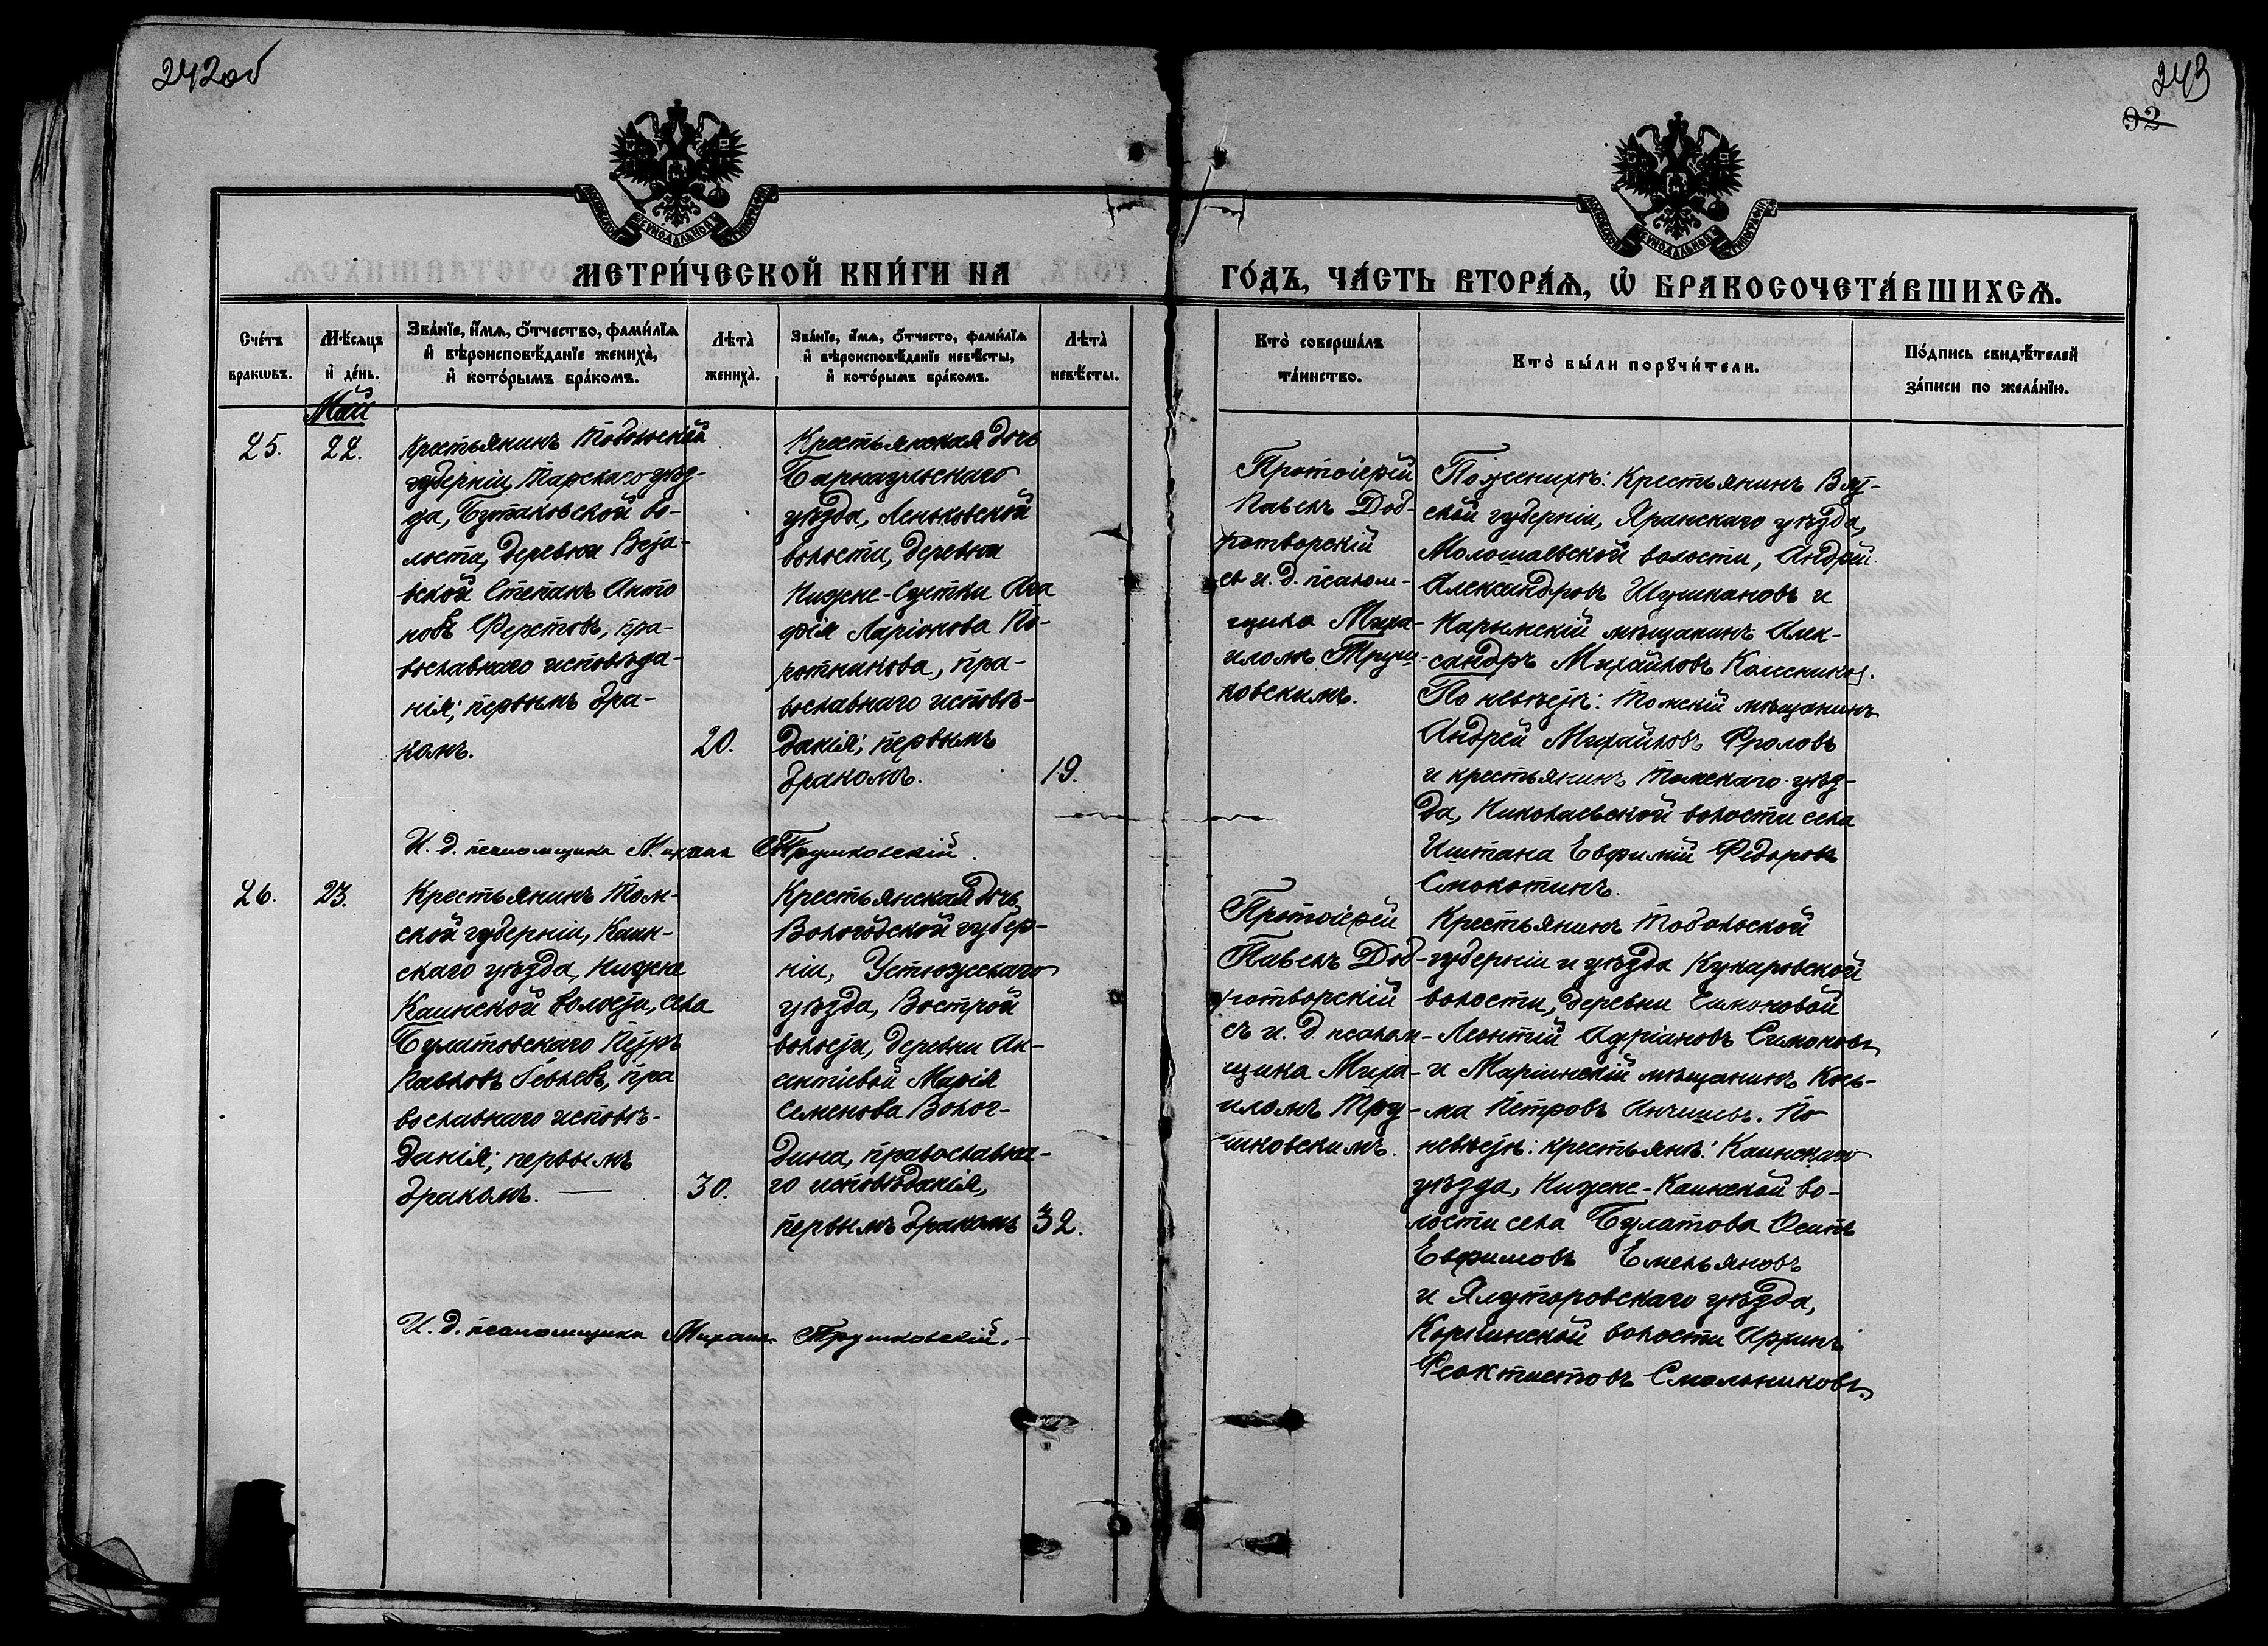 242об
243
92
МЕТРИ́ЧЕСКОЙ КНИ́ГИ НА
ГО́ДЪ, ЧА́СТЬ ВТОРА́Ѧ, Ѡ҆ БРАКОСОЧЕТА́ВШИХСѦ.
Сче́тъ браковъ.
Мѣ́сяцъ и де́нь.
Зва́нїе, и҆́мѧ, о҆́тчество, фами́лїѧ
и҆ вѣроисповѣ́данїе жениха̀,
и҆ кото́рымъ бра́комъ.
Лѣта̀ жениха̀.
Зва́нїе, и҆́мѧ, о҆́тчесто, фами́лїѧ
и҆ вѣроисповѣ́данїе невѣ́сты,
и҆ кото́рымъ бра́комъ.
Лѣта̀ невѣ́сты.
Кто̀ соверша́лъ
та́инство.
Кто̀ бы́ли порꙋчи́тели.
По́дпись свидѣ́телей
за́писи по жела́нїю.
Май
25.
22.
Крестьянинъ Тобольской
губерніи, Тарскаго уѣз-
да, Бутаковской во-
лости, деревни
вской Степанъ Анто
новъ Феретовъ, пра-
вославнаго исповѣда-
нія; первымъ бра-
комъ.
20.
Крестьянская дочь
Барнаульскаго
уѣзда, Леньковской
волости, деревни
Нижне-Суетки Ага
фія Ларіонова По-
ротникова, пра-
вославнаго исповѣ-
данія; первымъ
бракомъ.
19.
Протоіерей
Павелъ Доб-
ротворскій
съ и. д. псалом-
щика Миха-
иломъ Труш-
ковскимъ.
По женихѣ: Крестьянинъ Вят-
ской губерніи, Яранскаго уѣзда,
волости, Андрей
Александровъ Шушкановъ и
Нарымскій мѣщанинъ Алек-
сандръ Михайловъ
По невѣстѣ: Томскій мѣщанинъ
Андрей Михайловъ Фроловъ
и крестьянинъ Томскаго уѣз-
да, Николаевской волости села
Иштана Евфимій Федоровъ
Смокотинъ.
И. д. псаломщика Михаилъ Трушковскій.
26.
23.
Крестьянинъ Том-
ской губерніи, Каин-
скаго уѣзда, Нижне
Каинской волости, села
Булатовскаго Петръ
Павловъ пра
вославнаго исповѣ-
данія; первымъ
бракомъ. —
30.
Крестьянская дочь
Вологодской губер-
ніи, Устюжскаго
уѣзда, Вострой
волости, деревни Ак-
ентіевой Марія
Семенова Волог-
дина, православна-
го исповѣданія,
первымъ бракомъ
32.
Протоіерей
Павелъ Доб-
ротворскій
съ и. д. псалом-
щика Миха-
иломъ Тру-
шковскимъ.
Крестьянинъ Тобольской
губерніи и уѣзда Кугаровской
волости, деревни Симоновой
Леонтій Адріановъ Симоновъ
и Маріинскій мѣщанинъ Кось-
ма Петровъ По
невѣстѣ: крестьяне: Каинскаго
уѣзда, Нижне-Каинской во-
лости села Булатова Осипъ
Евфимовъ Емельяновъ
и Ялуторовскаго уѣзда,
волости Архипъ
Феоктистовъ Смольниковъ.
И. д. псаломщика Михаилъ Трушковскій.